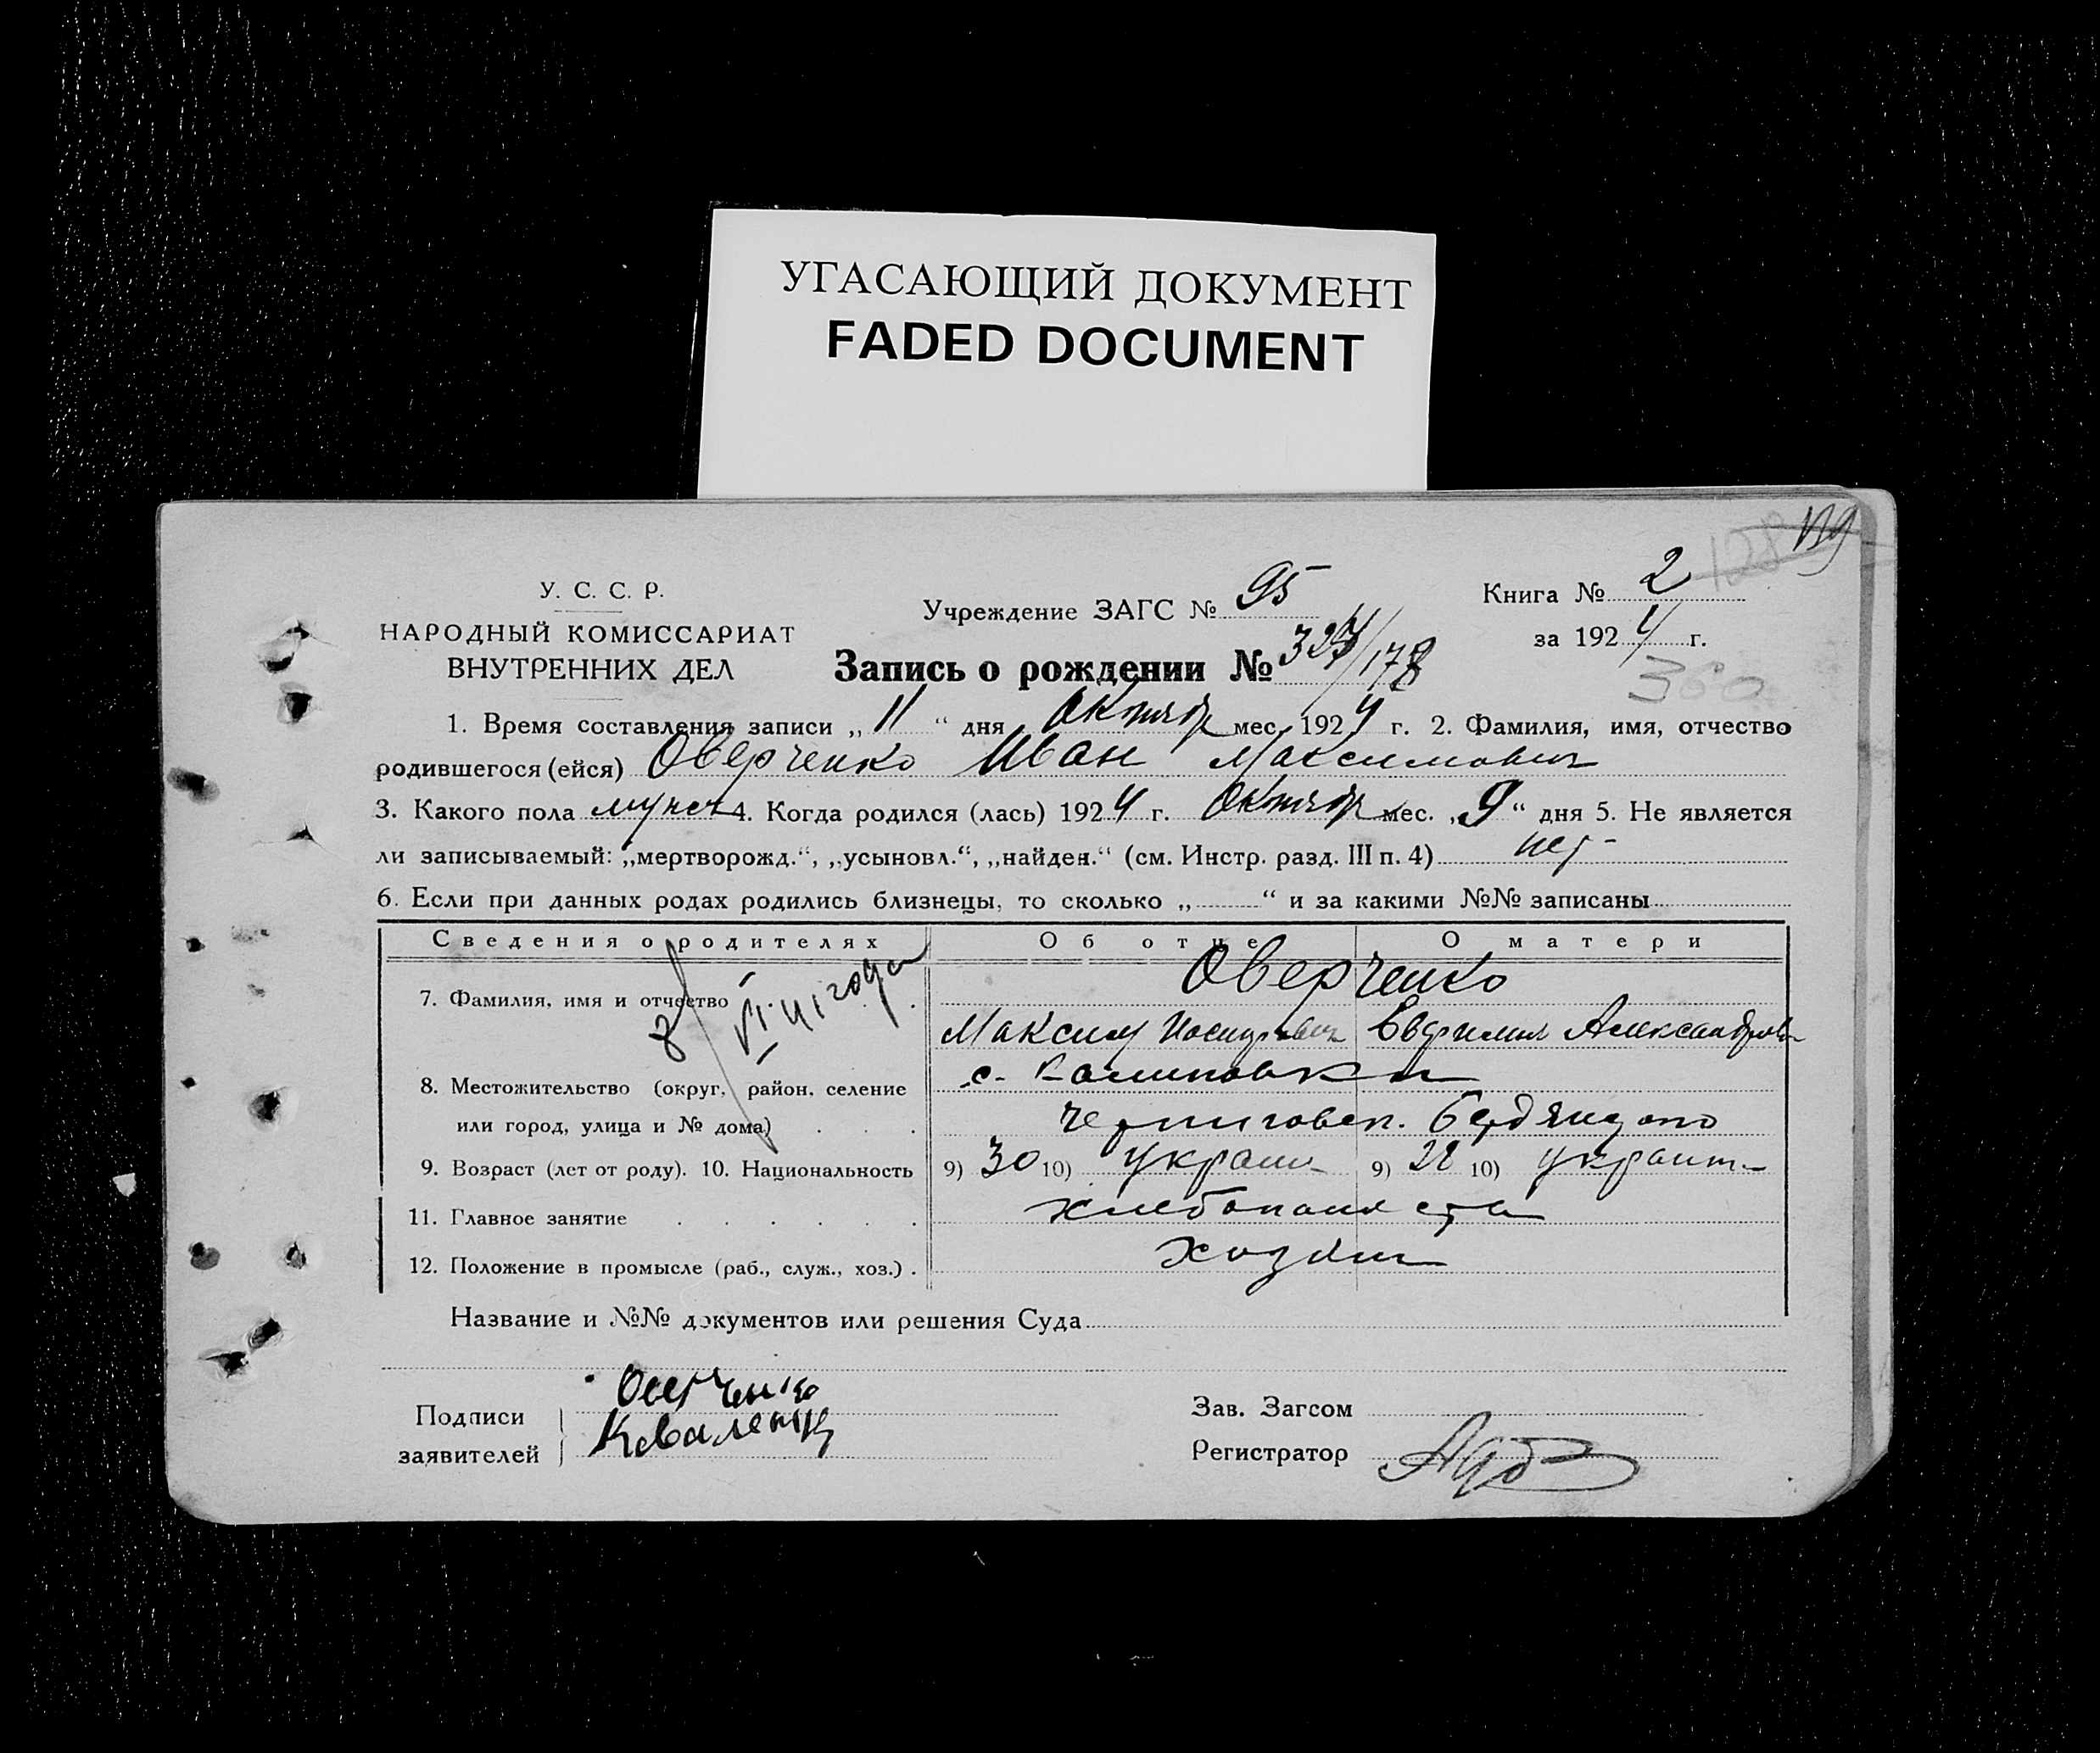 УГАСАЮЩИЙ ДОКУМЕНТ
FADED DOCUMENT
128
У. С. С. Р.
НАРОДНЫЙ КОМИССАРИАТ
ВНУТРЕННИХ ДЕЛ
Учреждение ЗАГС № 95
Книга № 2
за 1924 г.
Запись о рождении № /178
1. Время составления записи „11“ дня Октябр мес. 1924 г. 2. Фамилия, имя, отчество
родившегося (ейся) Оверченко Иван Максимович
3. Какого пола мужск 4. Когда родился (лась) 1924 г. Октябр мес. „9“ дня 5. Не является
ли записываемый: „мертворожд.“, „усыновл.“, „найден.“ (см. Инстр. разд. III п. 4) нет
6. Если при данных родах родились близнецы, то сколько „ “ и за какими №№ записаны
Сведения о родителях Об отце О матери
7. Фамилия, имя и отчество Оверченко
8/VI-41 года
Максим Евфимия Александров
8. Местожительство (округ, район, селение с. Калиновка
или город, улица и № дома) Черниговск. Бердянского
9. Возраст (лет от роду). 10. Национальность 9) 30 10) украин 9) 28 10) украин
11. Главное занятие хлебопашество
12. Положение в промысле (раб., служ., хоз.) хозяин
Название и №№ документов или решения Суда
Подписи
заявителей
Оверченко
Коваленко
Зав. Загсом
Регистратор